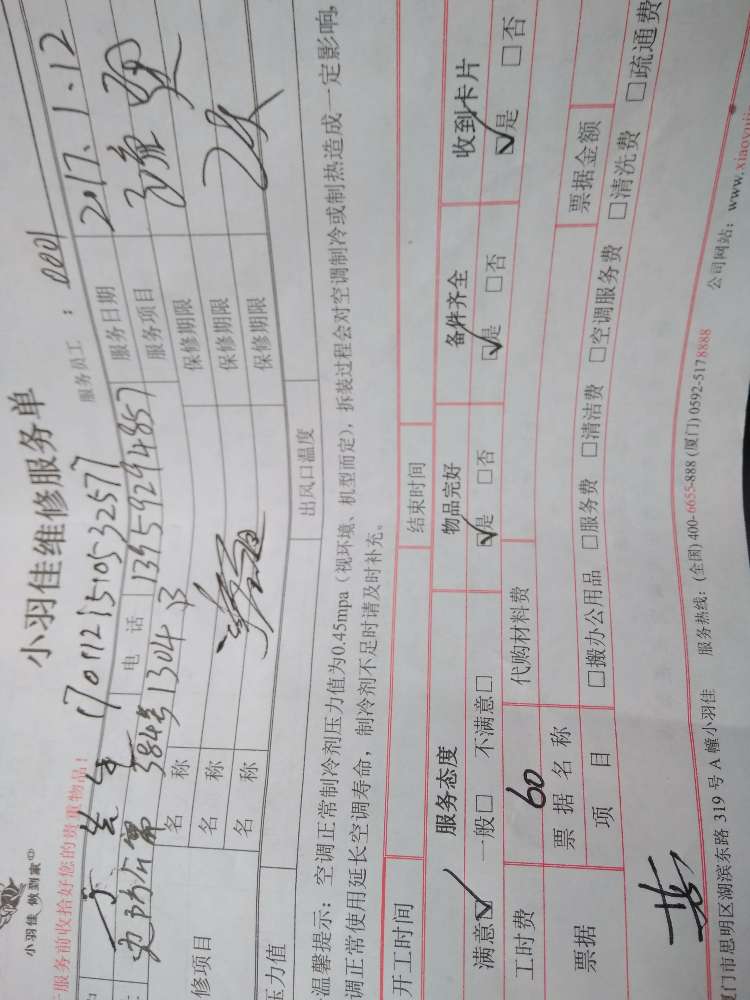 小羽佳 做到家
小羽佳维修服务单
服务前收拾好您的贵重物品！
服务员工 ： 0001
170112151053257
服务日期 2017.1.12
384号1304
电 话 13959294857
服务项目
名 称
保修期限
修项目 名 称
保修期限
名 称
保修期限
压力值
出风口温度
温馨提示：空调正常制冷剂压力值为0.45mpa（视环境、机型而定），拆装过程会对空调制冷或制热造成一定影响，
调正常使用延长空调寿命，制冷剂不足时请及时补充。
开工时间
结束时间
服务态度
物品完好
备件齐全
收到卡片
满意☑ 一般□ 不满意□
☑是 □否
☑是 □否
☑是 □否
工时费 60
代购材料费
票据
票 据 名 称
票据金额
项 目
□搬办公用品 □服务费 □清洁费 □空调服务费 □清洗费 □疏通费
门市思明区湖滨东路 319 号 A 幢小羽佳 服务热线：(全国) 400-6655-888 (厦门) 0592-5178888 公司网站：www.xiaoyuji